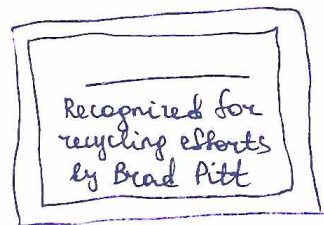 Recognized for
recycling efforts
by Brad Pitt